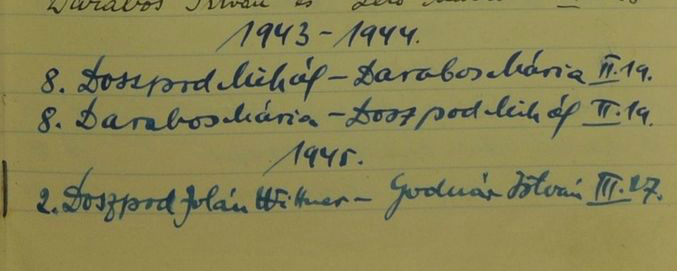 Darabos István és
1943-1944.
8. Doszpod Mihály - Darabos Mária II.19.
8. Darabos Mária - Doszpod Mihály II.19.
1945.
2. Doszpod Jolán Wittner - Godnár István III.27.